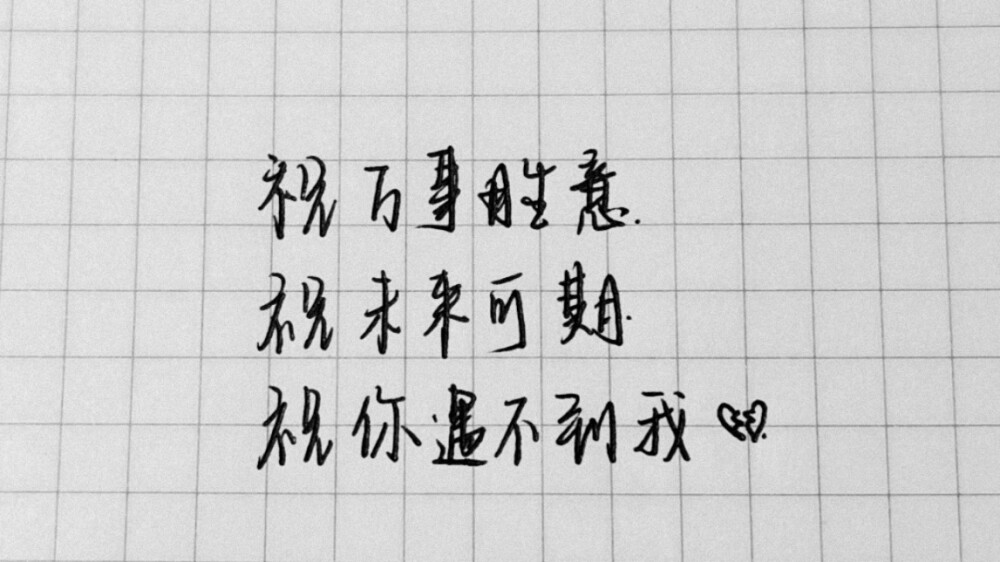 祝万事胜意.
祝未来可期.
祝你遇不到我